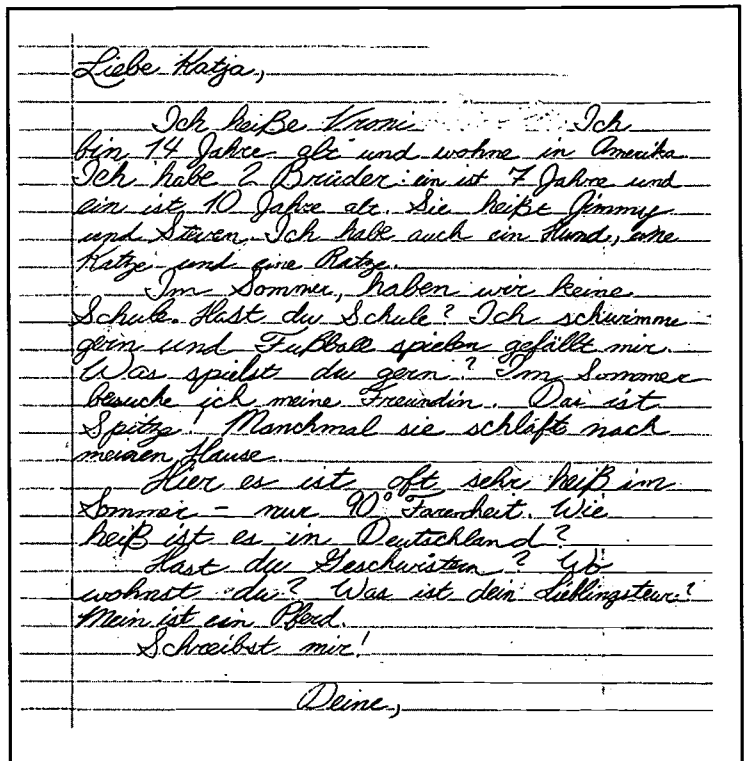 Liebe Katja,
Ich heiße Vroni Ich
bin 14 Jahre alt und wohne in Amerika.
Ich habe 2 Brüder: ein ist 7 Jahre und
ein ist 10 Jahre alt. Sie heißt Jimmy
und Steven. Ich habe auch ein Hund, eine
Katze und eine Ratze.
Im Sommer, haben wir keine
Schule. Hast du Schule? Ich schwimme
gern und Fußball spielen gefällt mir.
Was spielst du gern? Im Sommer
besuche ich meine Freundin. Das ist
Spitze! Manchmal sie schläft nach
meinen Hause.
Hier es ist oft sehr heiß im
Sommer - nur 90° Farenheit. Wie
heiß ist es in Deutschland?
Hast du Geschwistern? Wo
wohnst du? Was ist dein Lieblingsteur?
Mein ist ein Pferd.
Schreibst mir!
Deine,